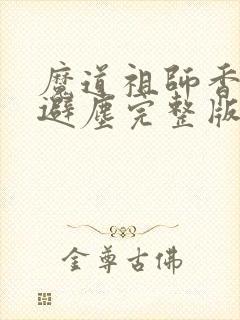 魔道祖師香
避塵完整版
金尊古佛